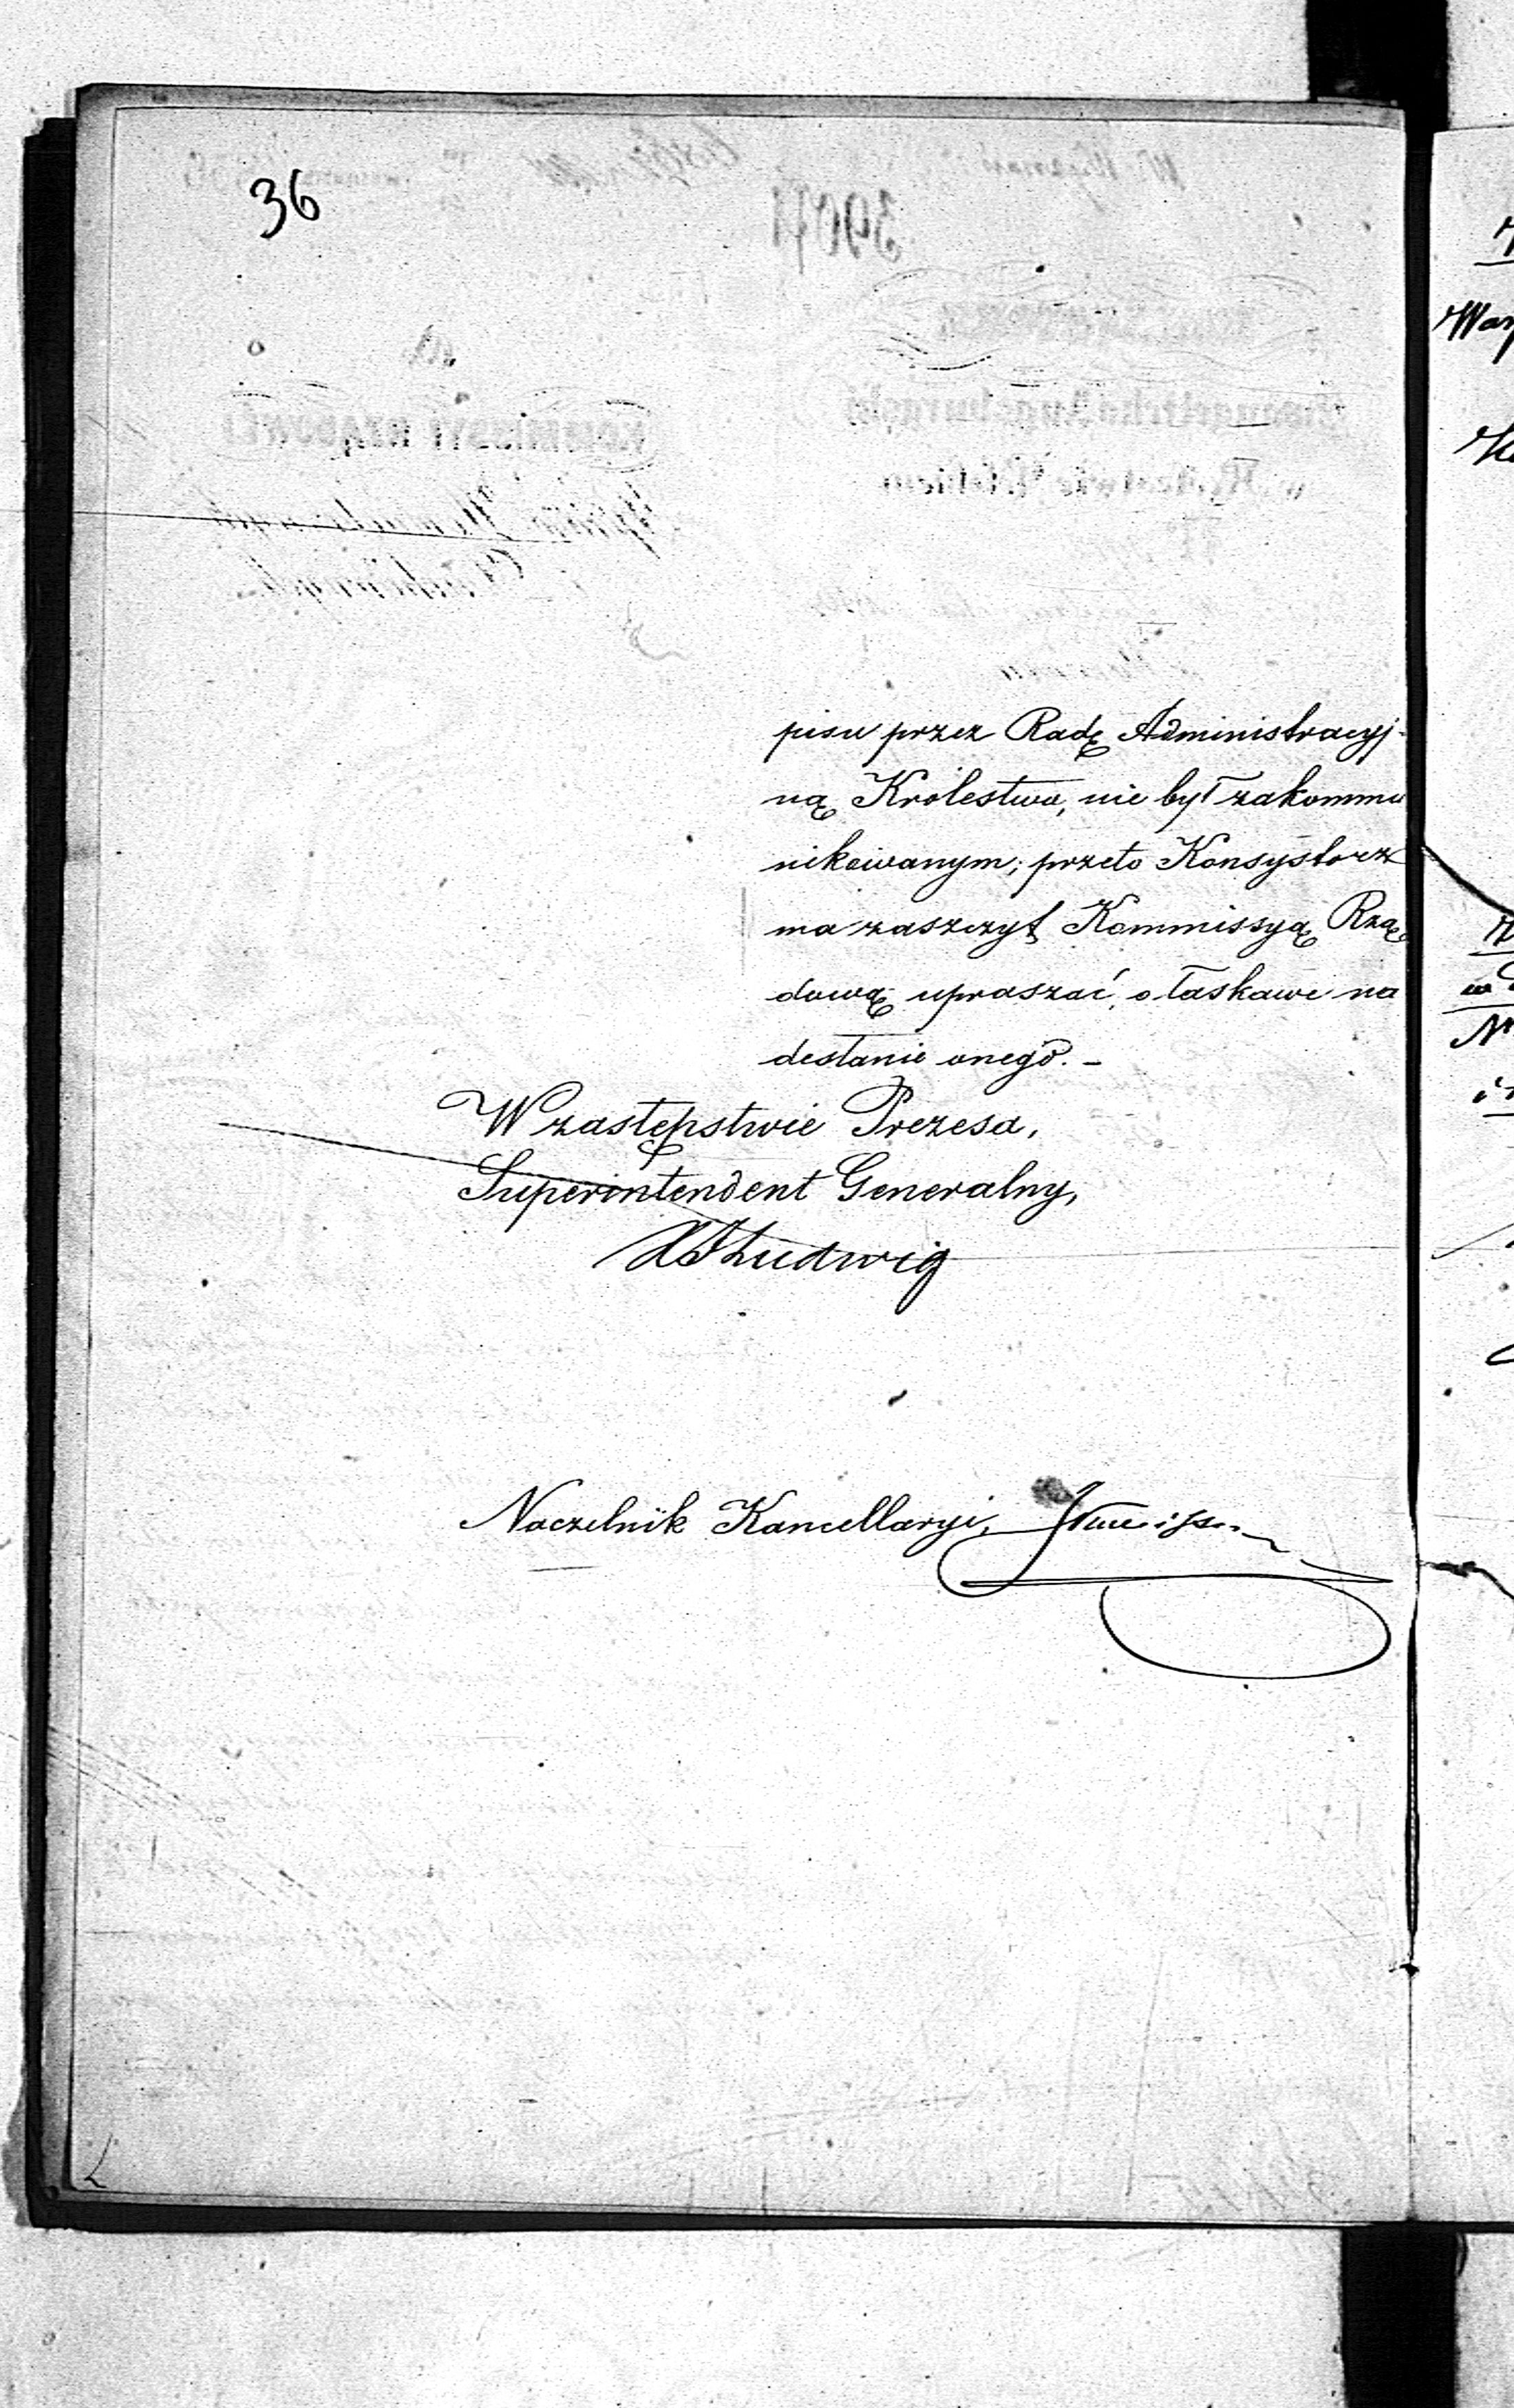 36
pisu przez Radę Administracyj-
ną Królestwa, nie był zakommu
nikowanym; przeto Konsystorz
ma zaszczyt Kommissyą Rzą
dową upraszać, o łaskawe na
desłanie onego. -
W zastępstwie Prezesa,
Superintendent Generalny,
Ludwig
Naczelnik Kancellaryi,